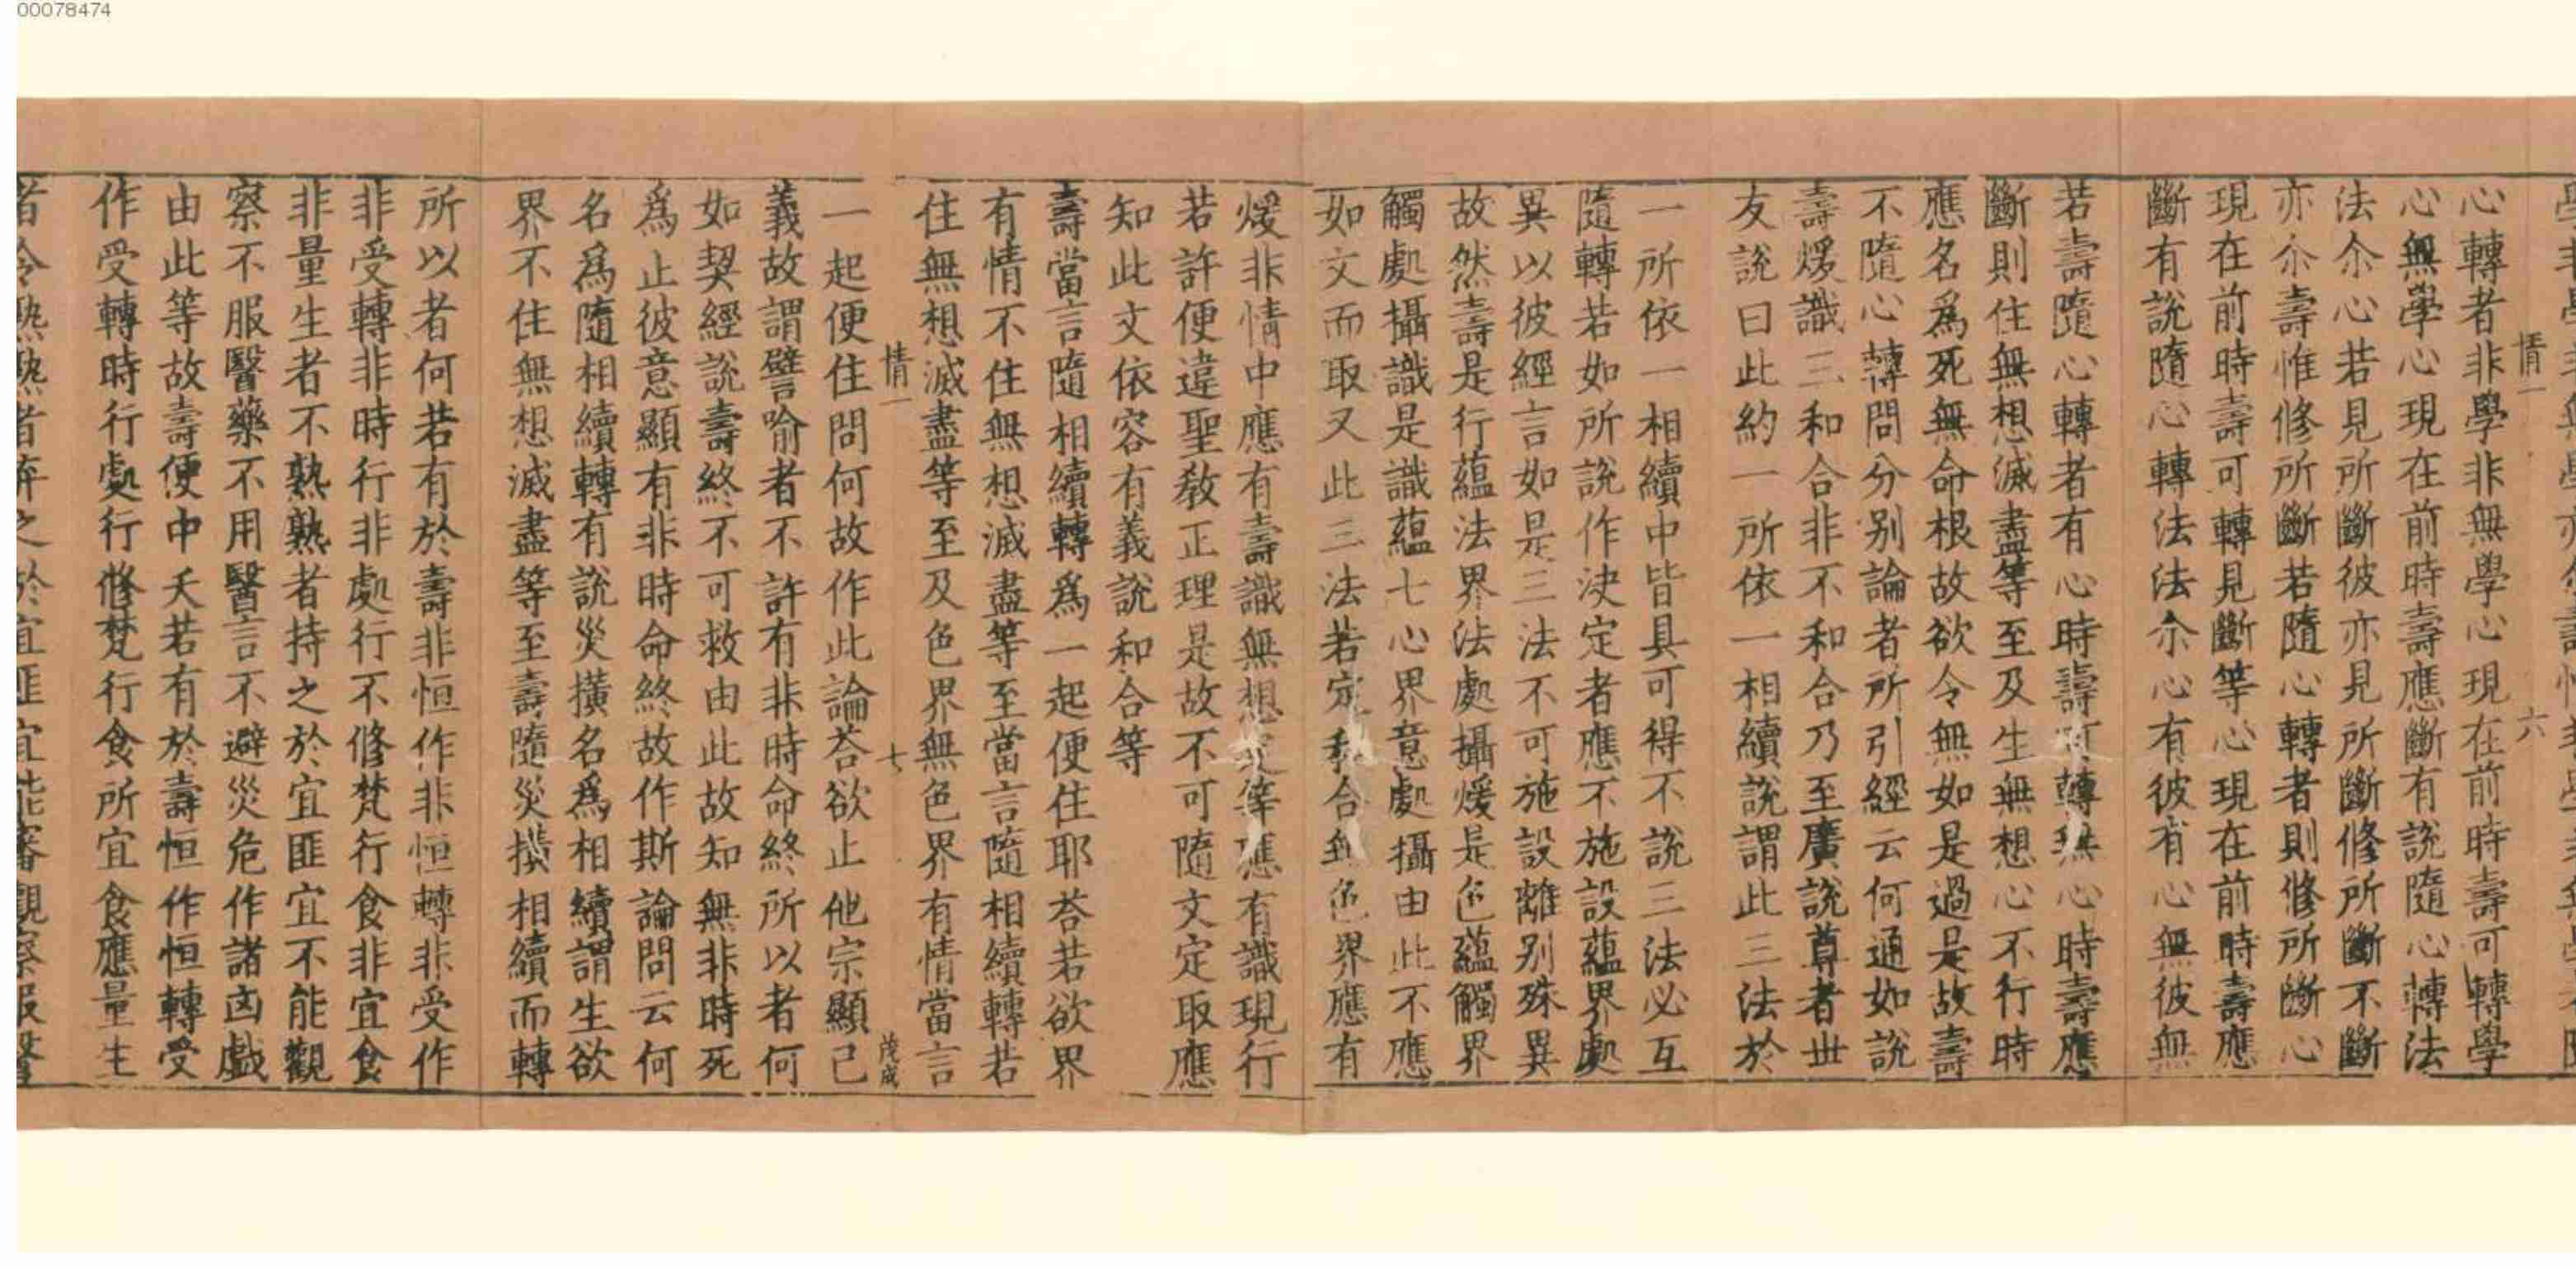 00078474
心轉者非學非無學心現在前時壽可轉學
心無學心現在前時壽應斷有說隨心轉法
法尒心若見所斷彼亦見所斷修所斷不斷
亦尒壽惟修所斷若隨心轉者則修所斷心
現在前時壽可轉見斷等心現在前時壽應
斷有說隨心轉法法尒心有彼有心無彼無
若壽隨心轉者有心時壽可轉無心時壽應
斷則住無想滅盡等至及生無想心不行時
應名為死無命根故欲令無如是過是故壽
不隨心轉問分別論者所引經云何通如說
壽煖識三和合非不和合乃至廣說尊者世
友說曰此約一所依一相續說謂此三法於
一所依一相續中皆具可得不說三法必互
隨轉若如所說作決定者應不施設蘊界處
異以彼經言如是三法不可施設離別殊異
故然壽是行蘊法界法處攝煖是色蘊觸界
觸處攝識是識蘊七心界意處攝由此不應
如文而取又此三法若定和合無色界應有
煖非情中應有壽識無想定等應有識現行
若許便違聖教正理是故不可隨文定取應
知此文依容有義說和合等
壽當言隨相續轉為一起便住耶荅若欲界
有情不住無想滅盡等至當言隨相續轉若
住無想滅盡等至及色界無色界有情當言
一起便住問何故作此論荅欲止他宗顯己
義故謂譬喻者不許有非時命終所以者何
如契經說壽終不可救由此故知無非時死
為止彼意顯有非時命終故作斯論問云何
名為隨相續轉有說災橫名為相續謂生欲
界不住無想滅盡等至壽隨災橫相續而轉
所以者何若有於壽非恒作非恒轉非受作
非受轉非時行非處行不修梵行食非宜食
非量生者不熟熟者持之於宜匪宜不能觀
察不服醫藥不用醫言不避災危作諸凶戲
由此等故壽便中夭若有於壽恒作恒轉受
作受轉時行處行修梵行食所宜食應量生
情一
六
情一
七
茂成